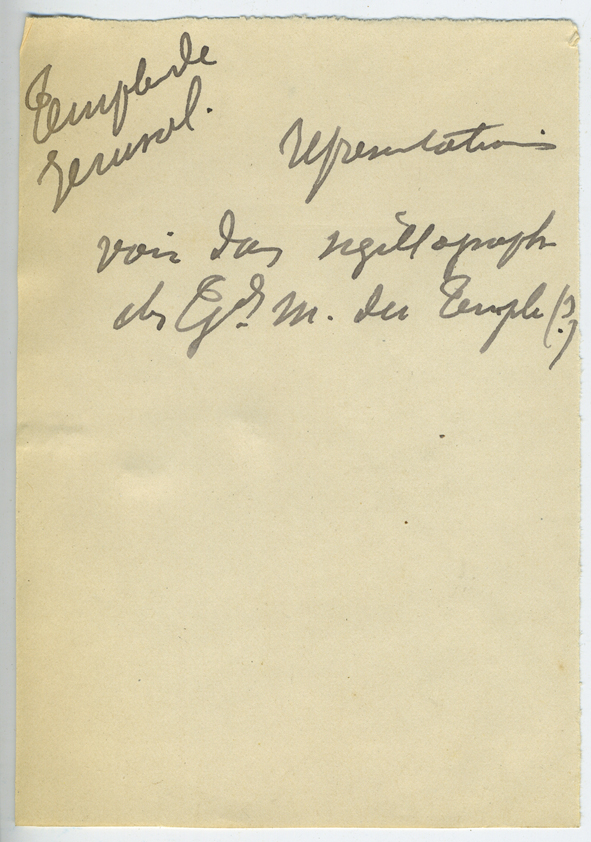 Temple de
Jerusal.
représentations
voir dans sigillographie
des Gds M. du Temple (?)